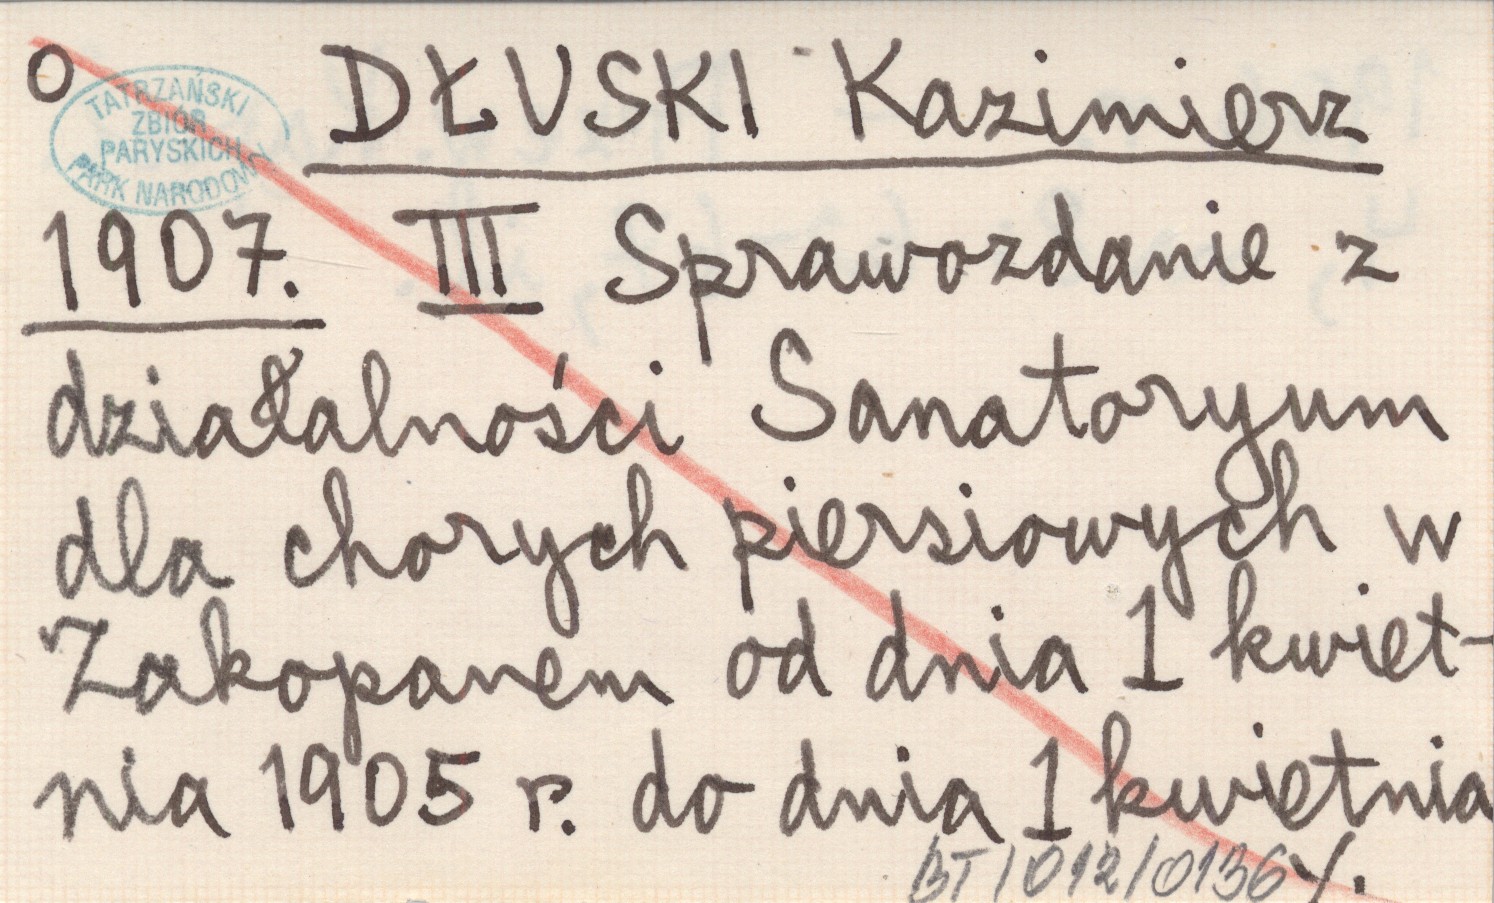 O DŁUSKI Kazimierz
TATRZAŃSKI
ZBIOR
PARYSKICH
PARK NARODOWY
1907. III Sprawozdanie z
działalności Sanatoryum
dla chorych piersiowych w
Zakopanem od dnia 1 kwiet-
nia 1905 r. do dnia 1 kwietnia
BT/012/0136 ./.